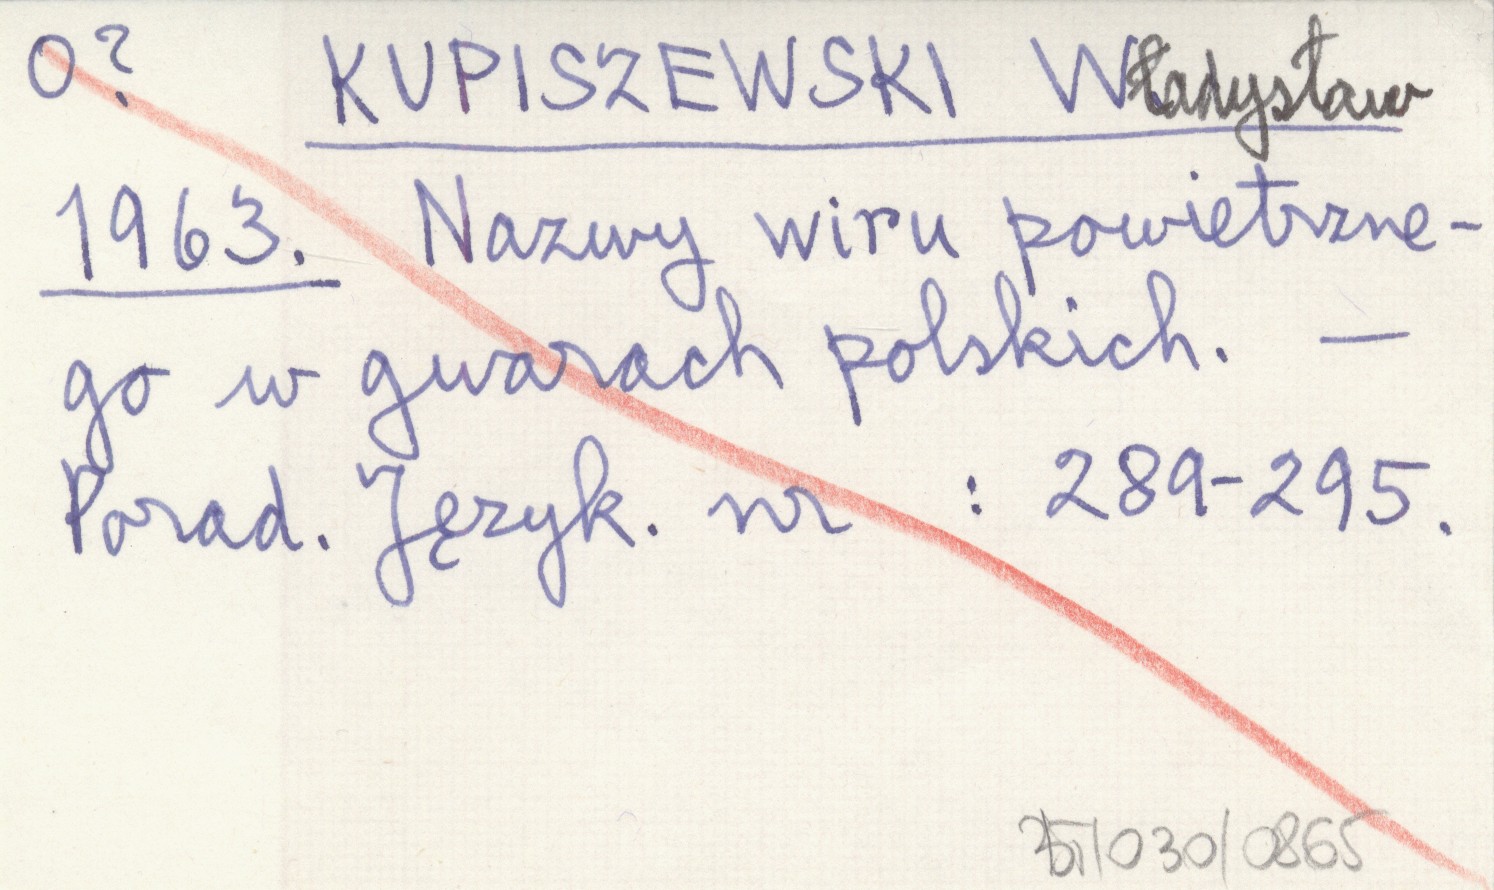 O? KUPISZEWSKI Władysław
1963. Nazwy wiru powietrzne-
go w gwarach polskich. —
Porad. Język. nr : 289-295.
/030/0865